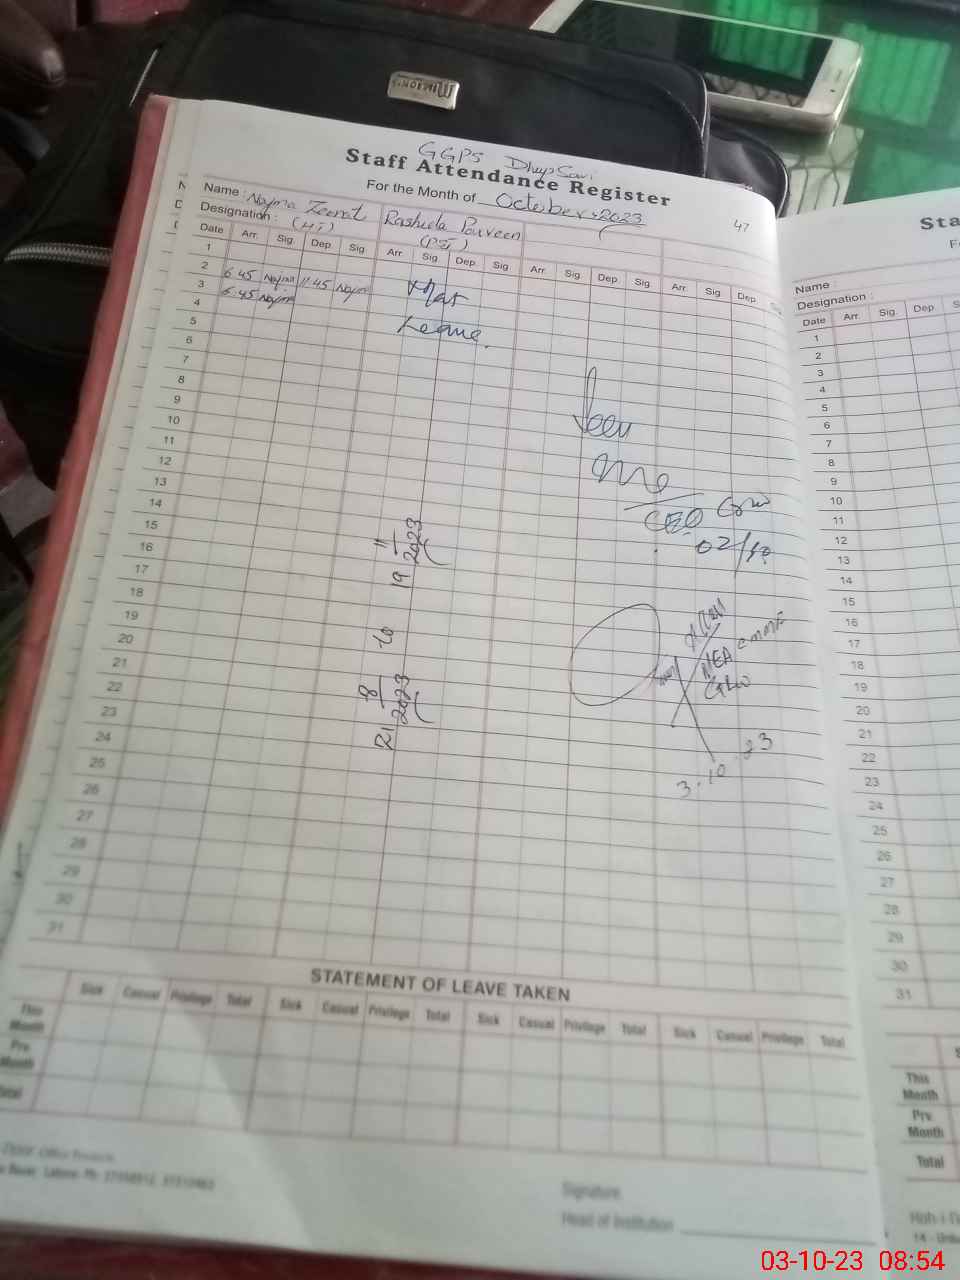 GGPS DhupSari
Staff Attendance Register
For the Month of October, 2023
47
Name : Najma Zeenat Rashida Parveen
Designation : (HT) (PST)
Date Arr. Sig. Dep. Sig. Arr. Sig. Dep. Sig. Arr. Sig. Dep. Sig. Arr. Sig. Dep. Sig.
1
2 6:45 Najma 11:45 Najma
3 6:45 Najma
4
Leave.
5
6
7
8
9
10
11
12
13
14
15
16
17
18
19
20
21
22
23
24
25
26
27
28
29
30
31
Seen
CEO Grw
02/10
21 8/2023 to 19 11/2023
MEA
Grw
3.10.23
STATEMENT OF LEAVE TAKEN
Sick Casual Privilege Total Sick Casual Privilege Total Sick Casual Privilege Total Sick Casual Privilege Total
This Month
Prv. Month
Total
Office Products
Lahore Ph:
Signature
Head of Institution
Sta
Name :
Designation :
Date Arr. Sig. Dep.
1
2
3
4
5
6
7
8
9
10
11
12
13
14
15
16
17
18
19
20
21
22
23
24
25
26
27
28
29
30
31
This Month
Prv. Month
Total
Koh-i-
14 - Urdu
03-10-23 08:54